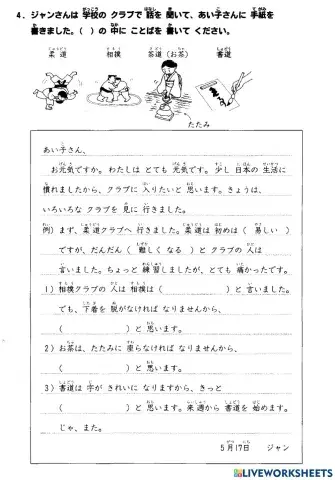 4. ジャンさんは 学校の クラブで 話を 聞いて、あい子さんに 手紙を
書きました。( ) の 中に ことばを 書いて ください。
柔道 相撲 茶道（お茶） 書道
たたみ
あい子さん、
お元気ですか。わたしは とても 元気です。少し 日本の 生活に
慣れましたから、クラブに 入りたいと 思います。きょうは、
いろいろな クラブを 見に 行きました。
例) まず、柔道クラブへ 行きました。柔道は 初めは ( 易しい )
ですが、だんだん ( 難しく なる ) と クラブの 人は
言いました。ちょっと 練習しましたが、とても 痛かったです。
1) 相撲クラブの 人は 相撲は ( ) と 言いました。
でも、下着を 脱がなければ なりませんから、
( ) と 思います。
2) お茶は、たたみに 座らなければ なりませんから、
( ) と 思います。
3) 書道は 字が きれいに なりますから、きっと
( ) と 思います。来週から 書道を 始めます。
じゃ、また。
5月17日 ジャン
LIVEWORKSHEETS